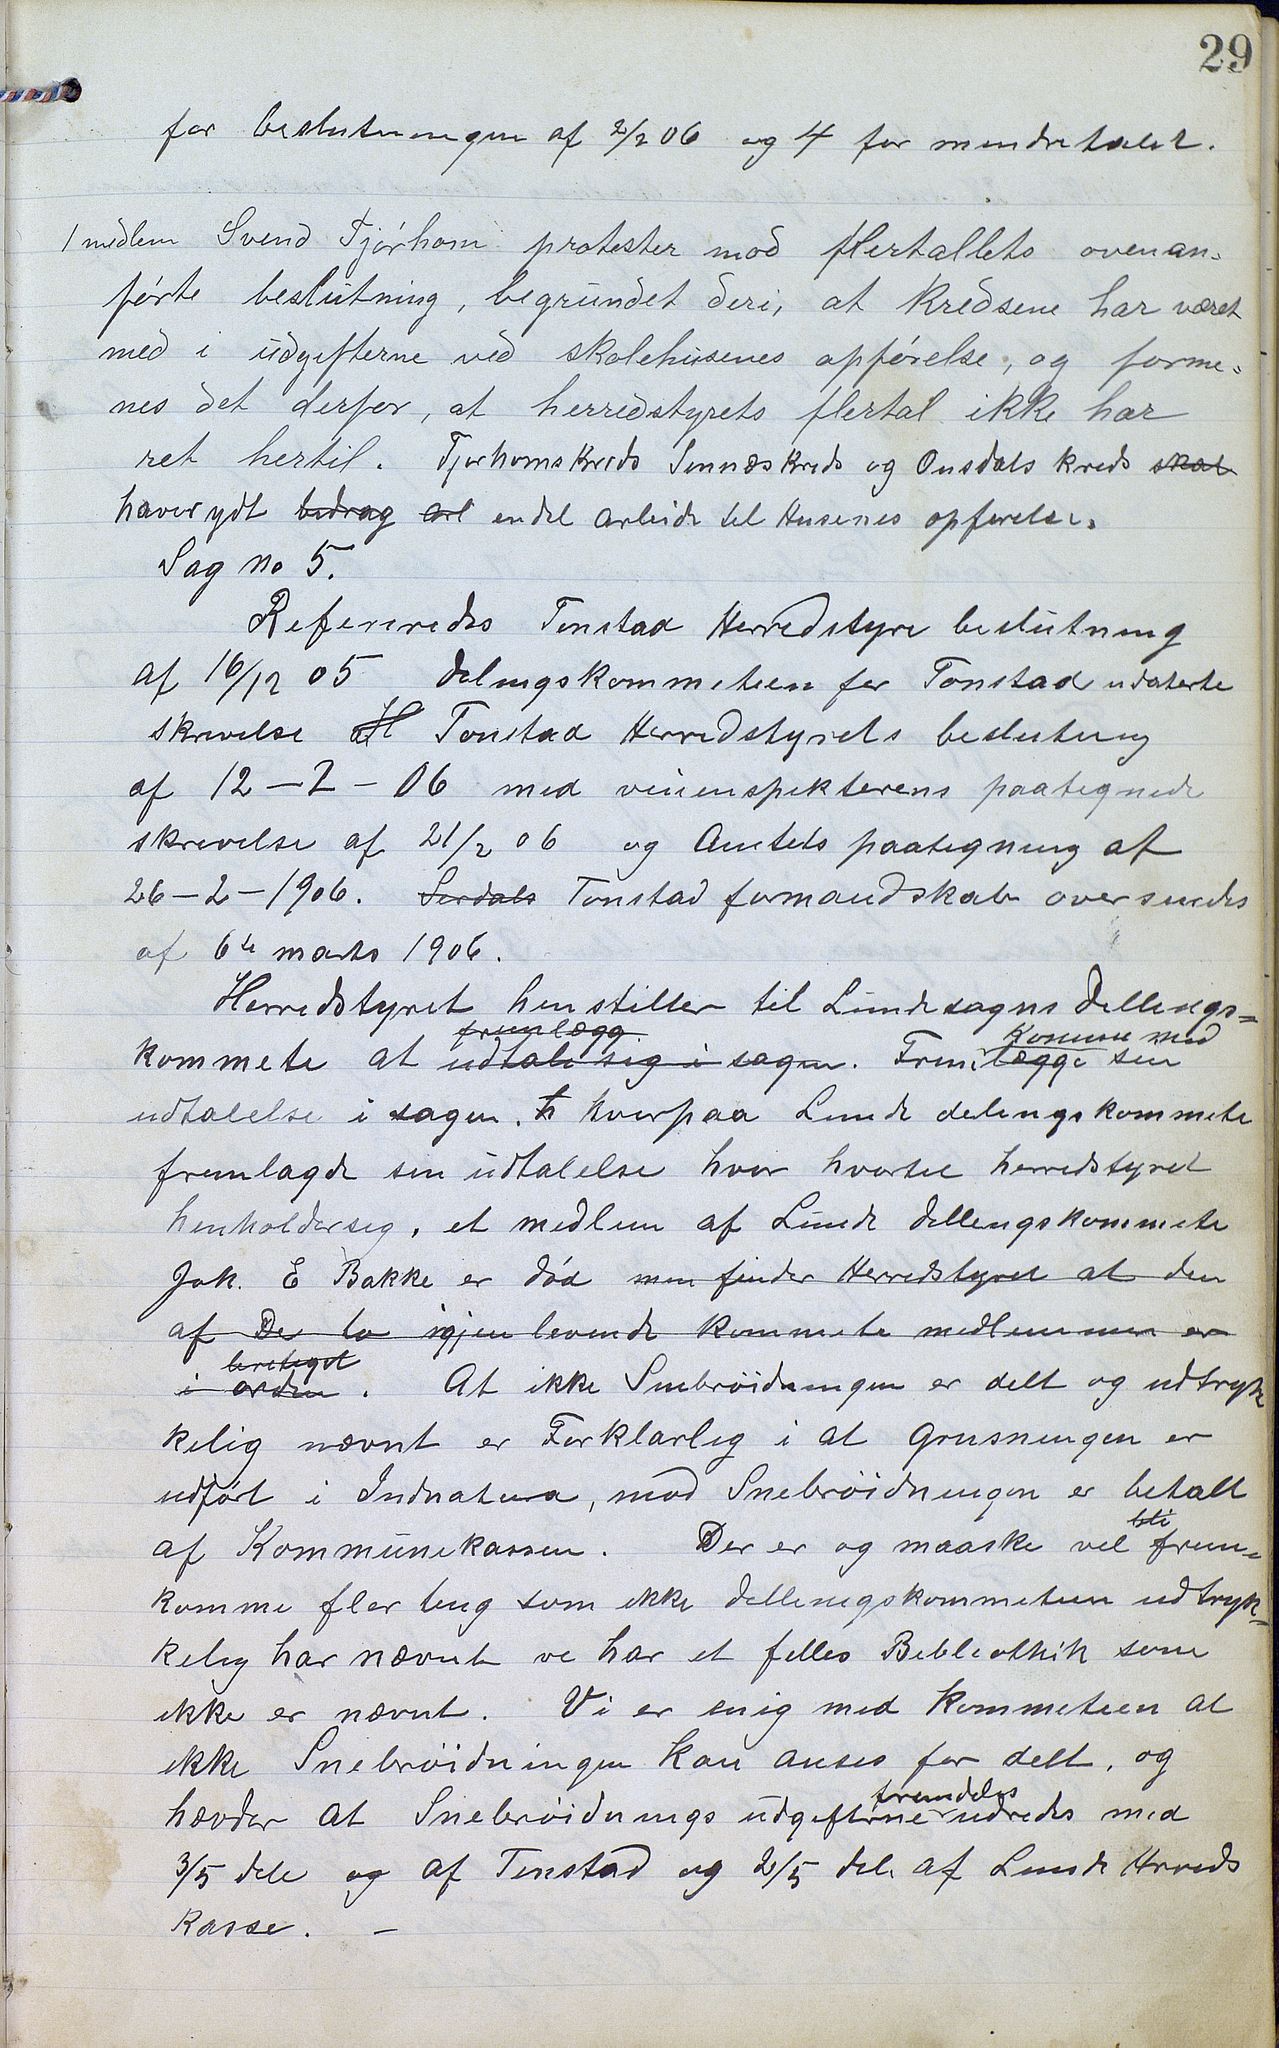 29
for beslutningen af 2/2 06 og 4 for mindretalet.
1 medlem Svend Tjórhom protester mod flertallets ovenan-
førte beslutning, begrundet deri, at kredsene har været
med i udgifterne ved skolehusenes opførelse, og forme-
nes det derfor, at herredstyrets flertal ikke har
ret hertil. Tjorhomskreds Sinnæskreds og Ousdals kreds skal
haver ydt bedrag arl endel arbeide til Husenes opførelse.
Sag no 5.
Refereredes Tonstad Herredstyre beslutning
af 16/12 05 delingskommeteen for Tonstad udaterte
skrivelse Tonstad Herredstyrets beslutning
af 12-2-06 med veiinspektørens paategnede
skrivelse af 21/2 06 og Amtets paategning af
26-2-1906. Serdals Tonstad formandskab oversendes
af 6te marts 1906.
Herredstyret henstiller til Lundesogns dellings-
fremlægg komme med
kommete at udtale sig i sagen. Frem lægge sin
udtalelse i sagen. h hverpaa Lunde delingskommete
fremlagde sin udtalelse hvor hvortil herredstyret
henholdersig. et medlem af Lunde dellingskommete
Joh. E Bakke er død men finder Herredstyret at den
af De to igjen levende kommete medlemmer er
beretiget
i orden. At ikke Snebrøidningen er delt og udtryk
kelig nævnt er Forklarlig i at Grusningen er
udført i Indnatura, mod Snebrøidningen er betalt
bli
af Kommunekassen. Der er og maaske vel frem-
komme fler ting som ikke dellingskommeteen udtryk-
kelig har nævnt ve har et felles Bebleothik som
ikke er nævnt. Vi er enig med Kommeteen at
ikke Snebrøidningen kan anses for delt. og
fremdeles
hævder at Snebrøidnings udgifterne udredes med
3/5 dele og af Tonstad og 2/5 del. af Lunde Herreds
Kasse. -